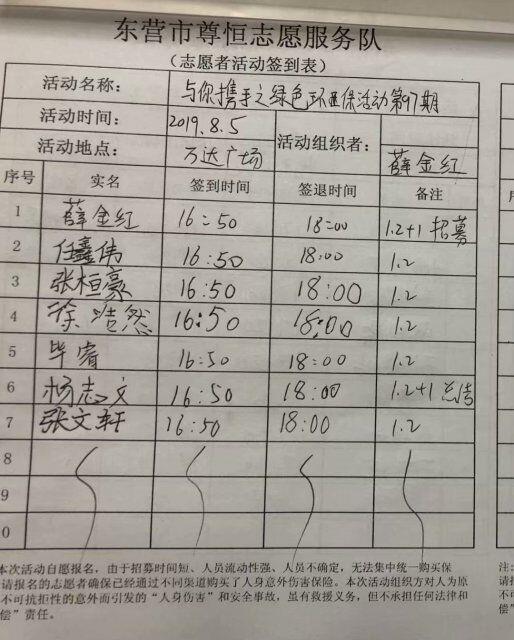 东营市尊恒志愿服务队
（志愿者活动签到表）
活动名称： 与你携手之绿色环保活动第97期
活动时间： 2019.8.5 活动组织者： 薛金红
活动地点： 万达广场
序号 实名 签到时间 签退时间 备注
1 薛金红 16:50 18:00 1.2+1 招募
2 任鑫伟 16:50 18:00 1.2
3 张桓豪 16:50 18:00 1.2
4 徐浩然 16:50 18:00 1.2
5 毕睿 16:50 18:00 1.2
6 杨志文 16:50 18:00 1.2+1 总结
7 张文轩 16:50 18:00 1.2
8
9
0
本次活动自愿报名，由于招募时间短、人员流动性强、人员不确定，无法集中统一购买保
请报名的志愿者确保已经通过不同渠道购买了人身意外伤害保险。本次活动组织方对人为原
不可抗拒性的意外而引发的“人身伤害”和安全事故，虽有救援义务，但不承担任何法律和
偿”责任。